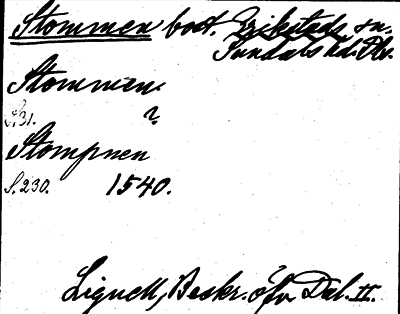 Stommen bost. Erikstads sn.
Sundals hd. Älvs.
Stommen.
S. 31. ?
Stompnen
S. 230. 1540.
Lignell, Beskr. öfv. Dal. II.